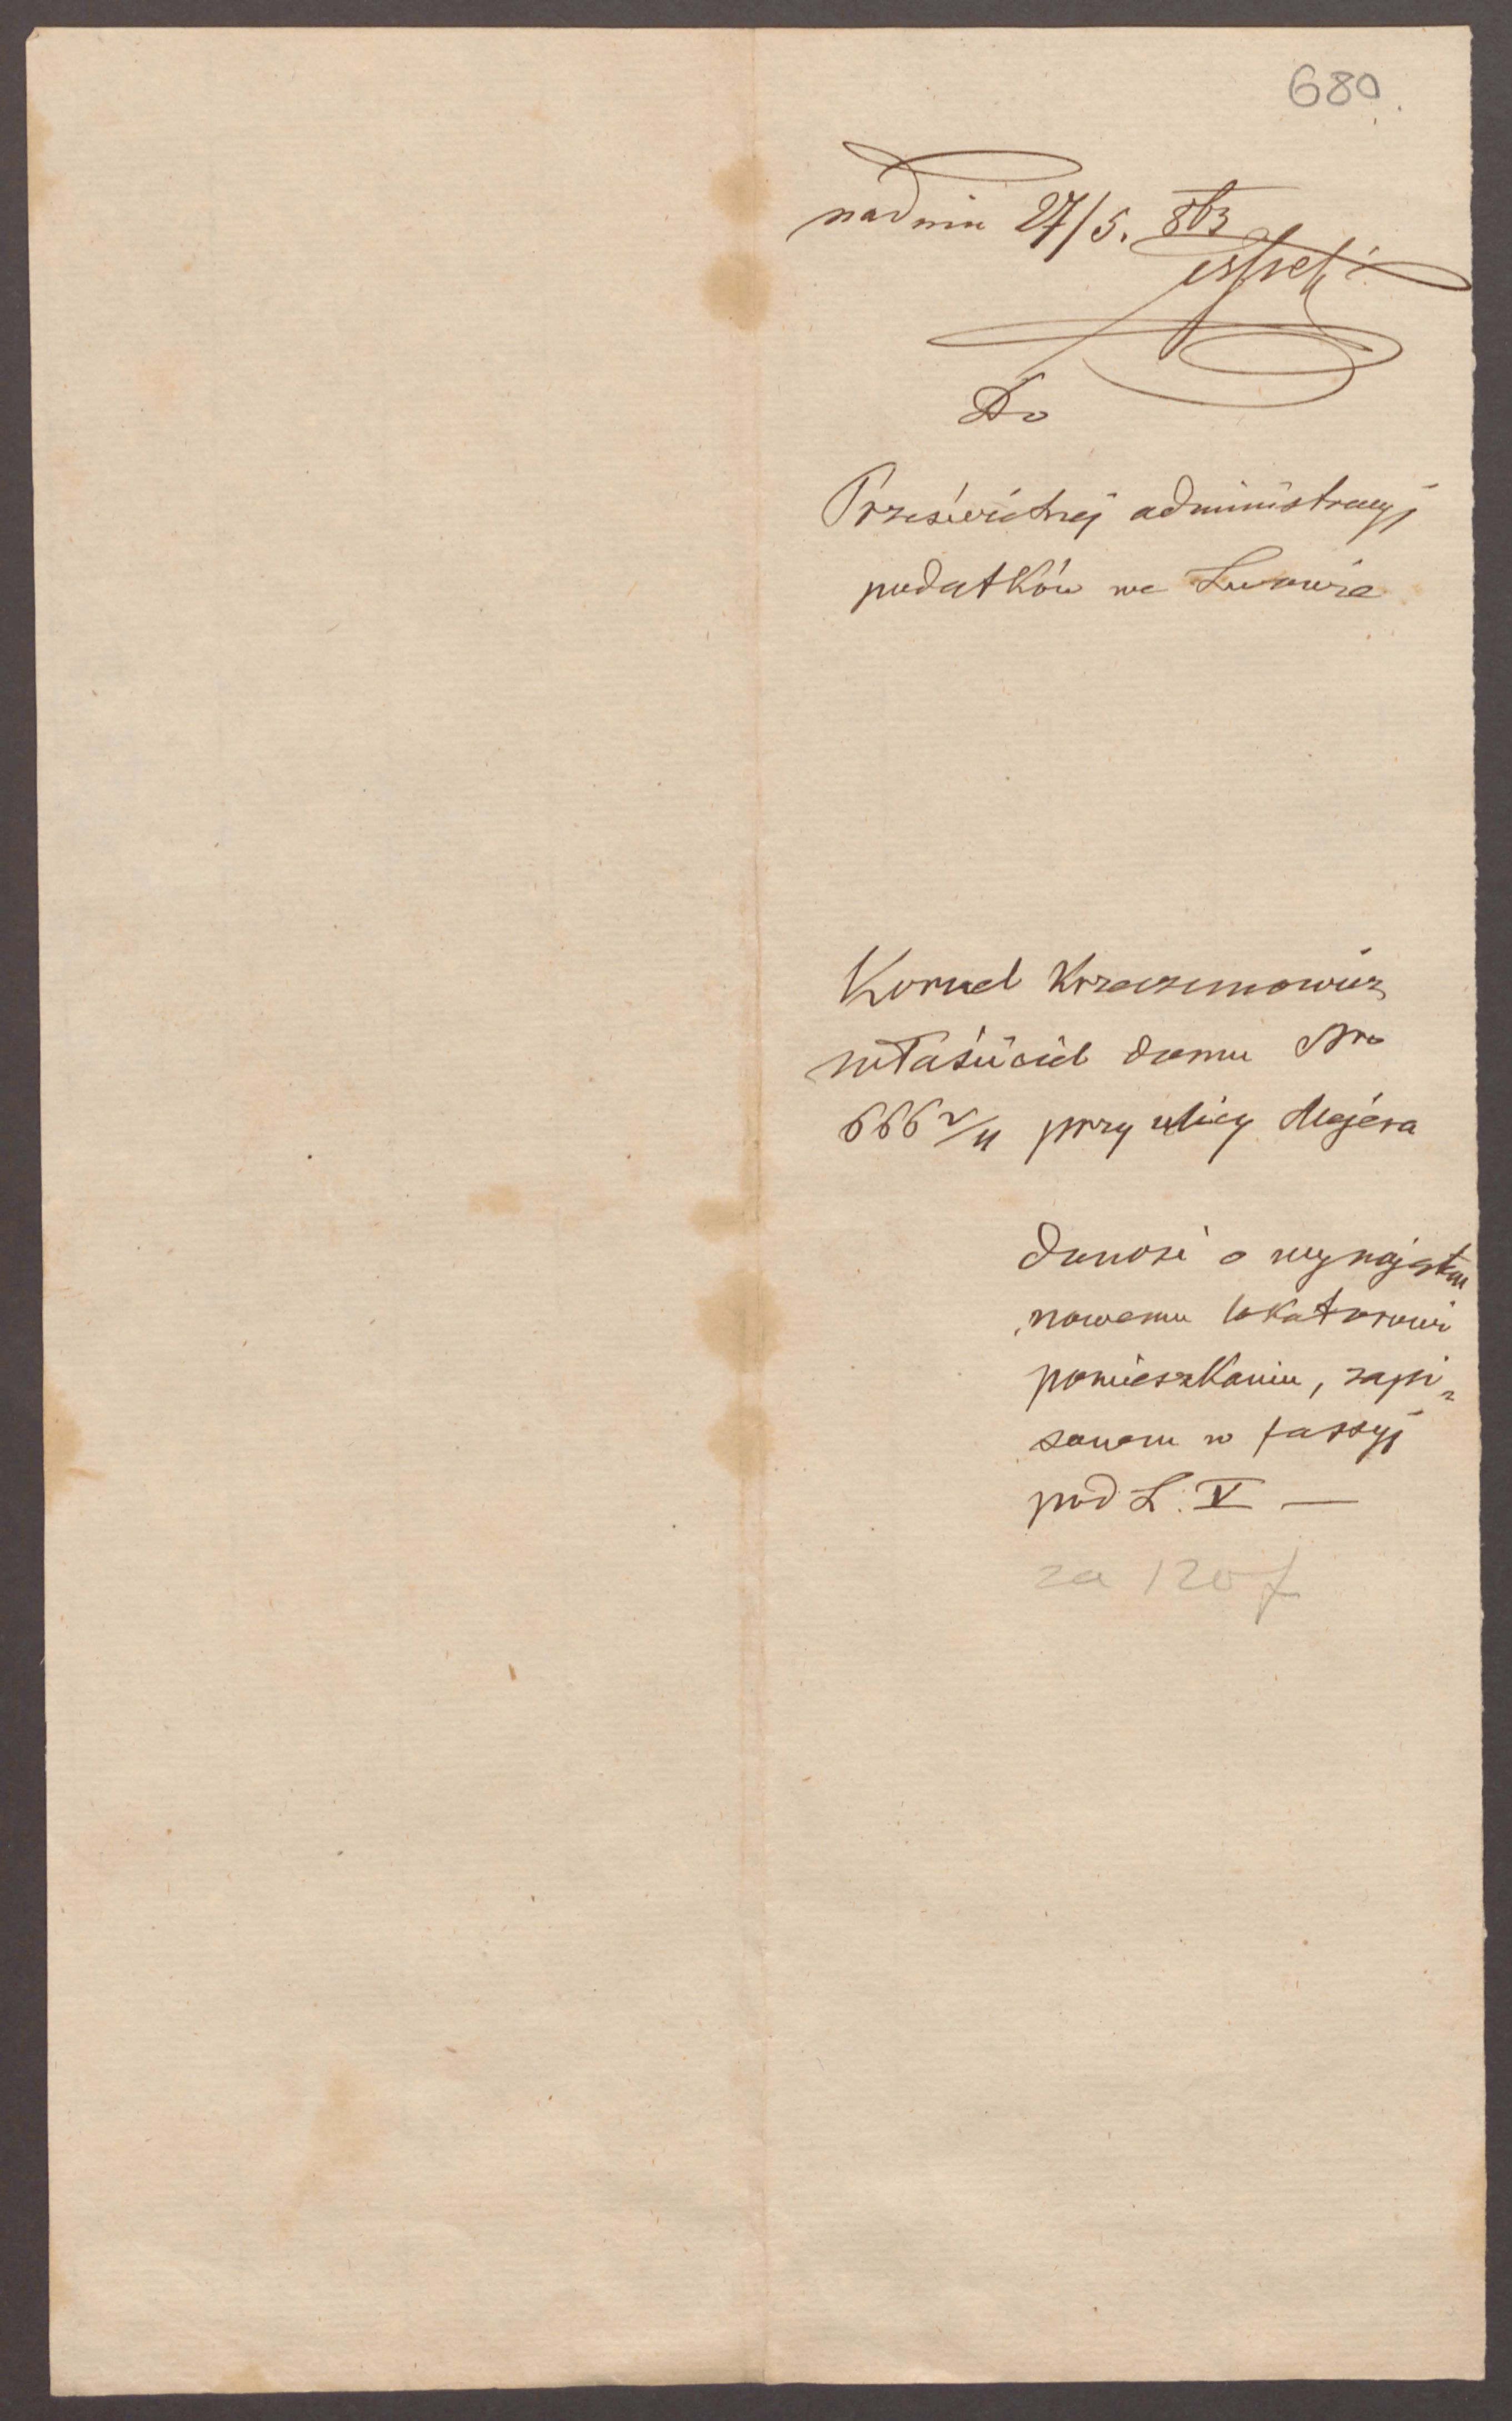 680.
nadniu 27/5. 863
Do
Prześwietnej administracyj
podatków we Lwowie
Kornel Krzeczunowicz
właściciel domu Nro
666 2/4 przy ulicy Majera
donosi o wynajętem
nowemu lokatorowi
pomieszkaniu, zapi-
sanem w fassyj
pod L. V —
za 120 f